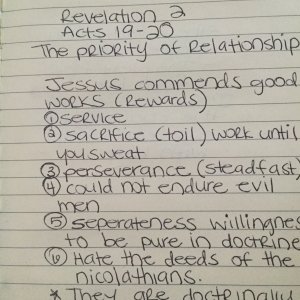 Revelation 2
Acts 19-20
The Priority of Relationship
Jessus commends good
works (Rewards)
① service
② sacrifice (toil) work until
you sweat
③ perseverance (steadfast)
④ could not endure evil
men
⑤ seperateness willingnes
to be pure in doctrine
⑥ Hate the deeds of the
nicolathians.
* They are doctrinally